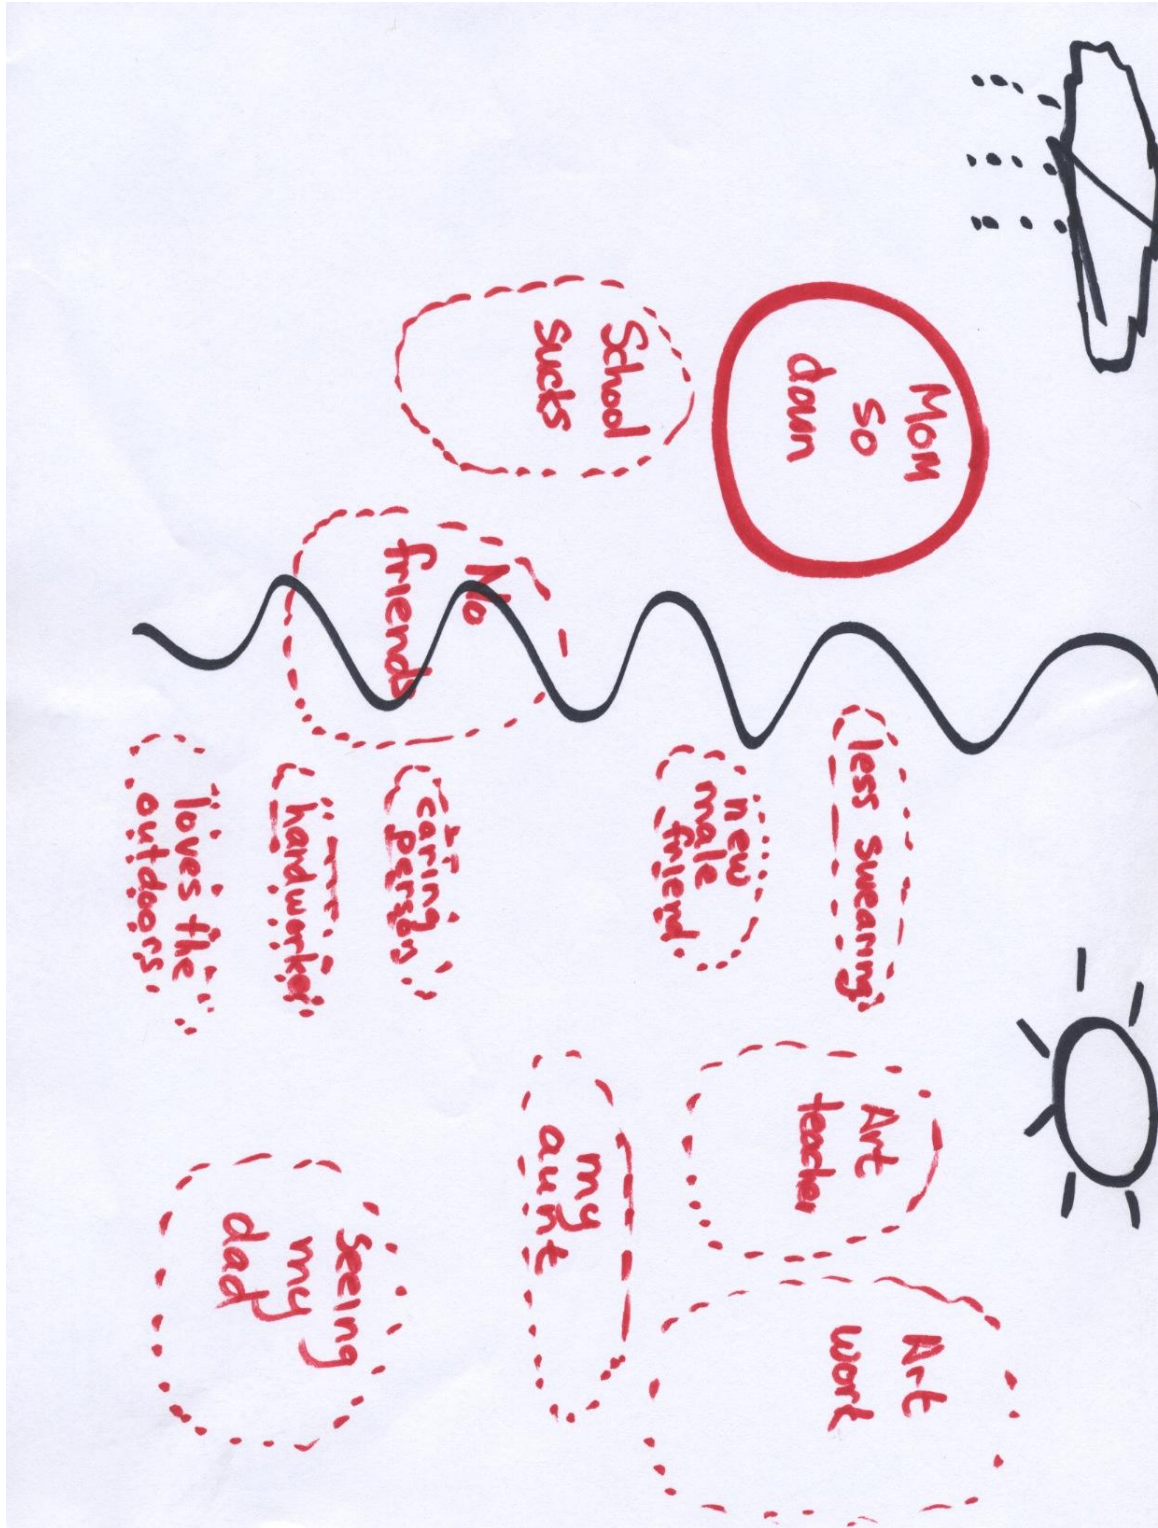 Mom
so
down
School
sucks
No
friends
less swearing
new
male
friend
caring
person
hardworker
loves the
outdoors
Art
teacher
my
aunt
Art
work
Seeing
my
dad